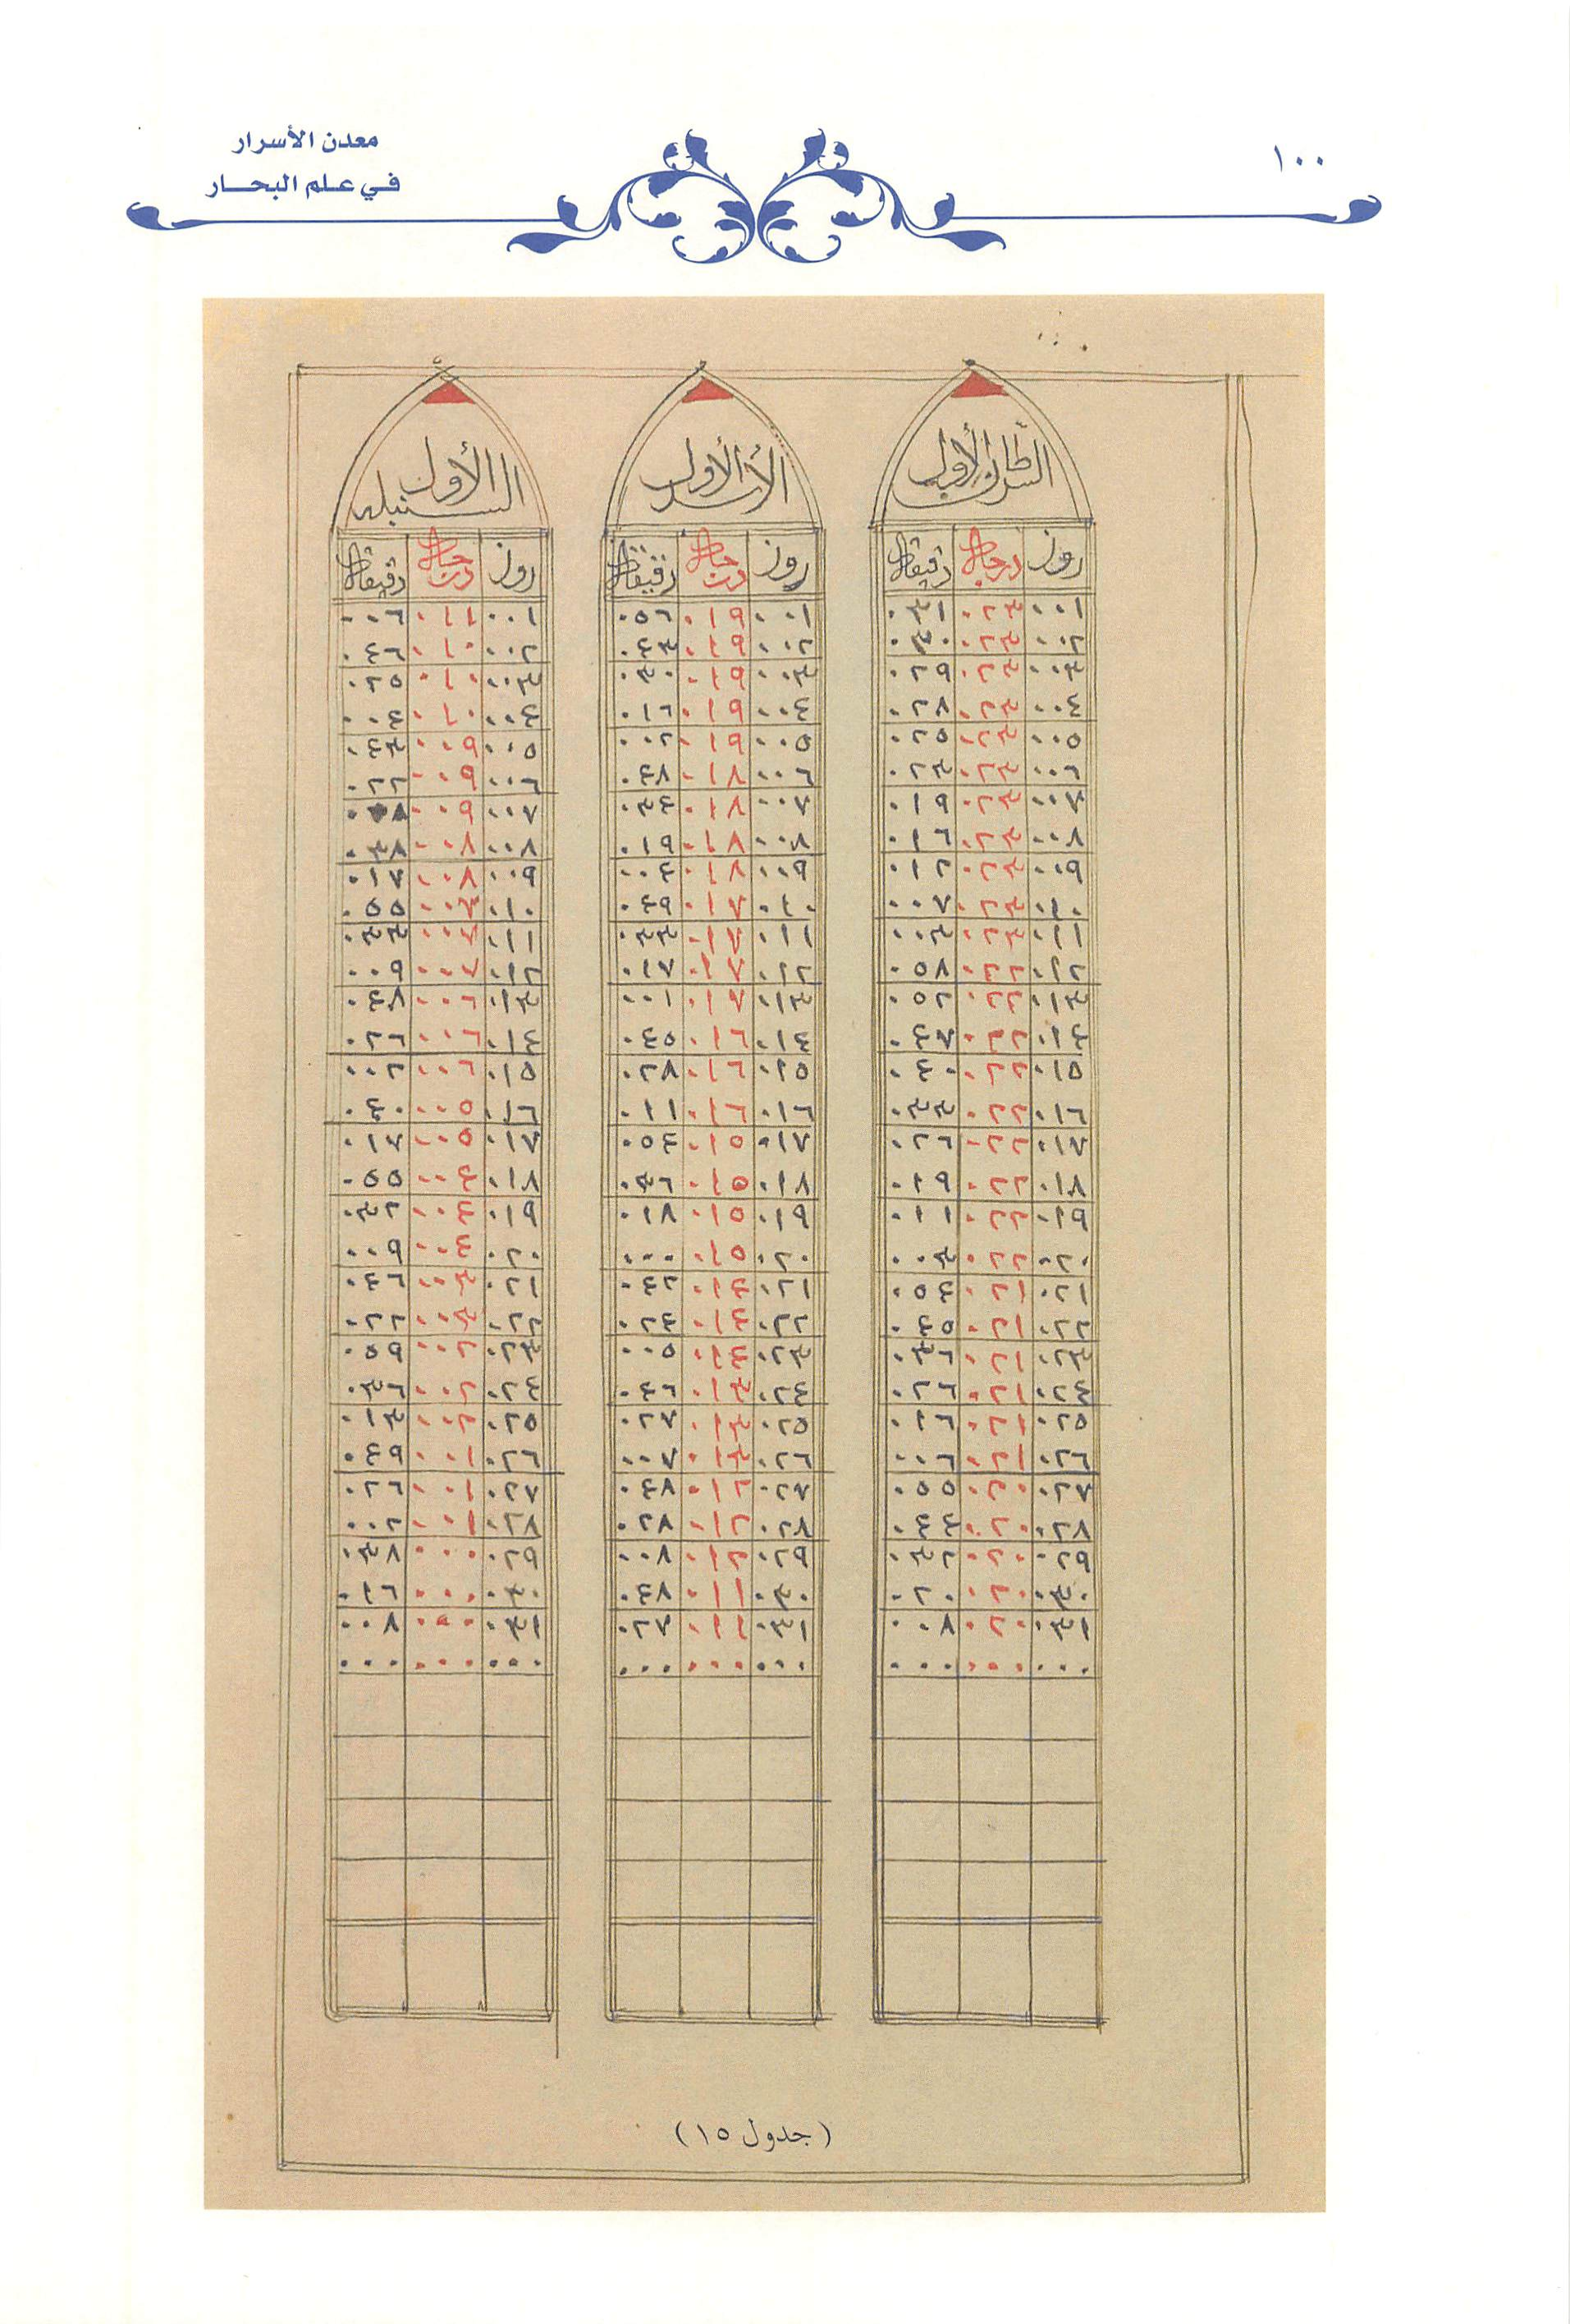 معدن الأسرار
في علم البحار
١٠٠
السرطان الأول
روز درجات دقيقات
٠٠١ ٠٢٣ ٠٣١
٠٠٢ ٠٢٣ ٠٣٠
٠٠٣ ٠٢٣ ٠٢٩
٠٠٤ ٠٢٣ ٠٢٨
٠٠٥ ٠٢٣ ٠٢٥
٠٠٦ ٠٢٣ ٠٢٣
٠٠٧ ٠٢٣ ٠١٩
٠٠٨ ٠٢٣ ٠١٦
٠٠٩ ٠٢٣ ٠١٢
٠١٠ ٠٢٣ ٠٠٧
٠١١ ٠٢٣ ٠٠٣
٠١٢ ٠٢٢ ٠٥٨
٠١٣ ٠٢٢ ٠٥٢
٠١٤ ٠٢٢ ٠٤٧
٠١٥ ٠٢٢ ٠٤٠
٠١٦ ٠٢٢ ٠٣٣
٠١٧ ٠٢٢ ٠٢٦
٠١٨ ٠٢٢ ٠١٩
٠١٩ ٠٢٢ ٠١١
٠٢٠ ٠٢٢ ٠٠٣
٠٢١ ٠٢١ ٠٥٤
٠٢٢ ٠٢١ ٠٤٥
٠٢٣ ٠٢١ ٠٣٦
٠٢٤ ٠٢١ ٠٢٦
٠٢٥ ٠٢١ ٠١٦
٠٢٦ ٠٢١ ٠٠٦
٠٢٧ ٠٢٠ ٠٥٥
٠٢٨ ٠٢٠ ٠٤٤
٠٢٩ ٠٢٠ ٠٣٢
٠٣٠ ٠٢٠ ٠٢٠
٠٣١ ٠٢٠ ٠٠٨
٠٠٠ ٠٠٠ ٠٠٠
الأسد الأول
روز درجات دقيقات
٠٠١ ٠١٩ ٠٥٦
٠٠٢ ٠١٩ ٠٤٣
٠٠٣ ٠١٩ ٠٣٠
٠٠٤ ٠١٩ ٠١٦
٠٠٥ ٠١٩ ٠٠٢
٠٠٦ ٠١٨ ٠٤٨
٠٠٧ ٠١٨ ٠٣٤
٠٠٨ ٠١٨ ٠١٩
٠٠٩ ٠١٨ ٠٠٤
٠١٠ ٠١٧ ٠٤٩
٠١١ ٠١٧ ٠٣٣
٠١٢ ٠١٧ ٠١٧
٠١٣ ٠١٧ ٠٠١
٠١٤ ٠١٦ ٠٤٥
٠١٥ ٠١٦ ٠٢٨
٠١٦ ٠١٦ ٠١١
٠١٧ ٠١٥ ٠٥٤
٠١٨ ٠١٥ ٠٣٦
٠١٩ ٠١٥ ٠١٨
٠٢٠ ٠١٥ ٠٠٠
٠٢١ ٠١٤ ٠٤٢
٠٢٢ ٠١٤ ٠٢٤
٠٢٣ ٠١٤ ٠٠٥
٠٢٤ ٠١٣ ٠٤٦
٠٢٥ ٠١٣ ٠٢٧
٠٢٦ ٠١٣ ٠٠٧
٠٢٧ ٠١٢ ٠٤٨
٠٢٨ ٠١٢ ٠٢٨
٠٢٩ ٠١٢ ٠٠٨
٠٣٠ ٠١١ ٠٤٨
٠٣١ ٠١١ ٠٢٧
٠٠٠ ٠٠٠ ٠٠٠
السنبله الأول
روز درجات دقيقات
٠٠١ ٠١١ ٠٠٦
٠٠٢ ٠١٠ ٠٤٦
٠٠٣ ٠١٠ ٠٢٥
٠٠٤ ٠١٠ ٠٠٤
٠٠٥ ٠٠٩ ٠٤٣
٠٠٦ ٠٠٩ ٠٢٢
٠٠٧ ٠٠٩
٠٠٨ ٠٠٨ ٠٣٨
٠٠٩ ٠٠٨ ٠١٧
٠١٠ ٠٠٧ ٠٥٥
٠١١ ٠٠٧ ٠٣٣
٠١٢ ٠٠٧ ٠٠٩
٠١٣ ٠٠٦ ٠٤٨
٠١٤ ٠٠٦ ٠٢٦
٠١٥ ٠٠٦ ٠٠٢
٠١٦ ٠٠٥ ٠٤٠
٠١٧ ٠٠٥ ٠١٧
٠١٨ ٠٠٤ ٠٥٥
٠١٩ ٠٠٤ ٠٣٢
٠٢٠ ٠٠٤ ٠٠٩
٠٢١ ٠٠٣ ٠٤٦
٠٢٢ ٠٠٣ ٠٢٢
٠٢٣ ٠٠٢ ٠٥٩
٠٢٤ ٠٠٢ ٠٣٦
٠٢٥ ٠٠٢ ٠١٣
٠٢٦ ٠٠١ ٠٤٩
٠٢٧ ٠٠١ ٠٢٦
٠٢٨ ٠٠١ ٠٠٢
٠٢٩ ٠٠٠ ٠٣٨
٠٣٠ ٠٠٠ ٠١٦
٠٣١ ٠٠٠ ٠٠٨
٠٠٠ ٠٠٠ ٠٠٠
(جدول ١٥)